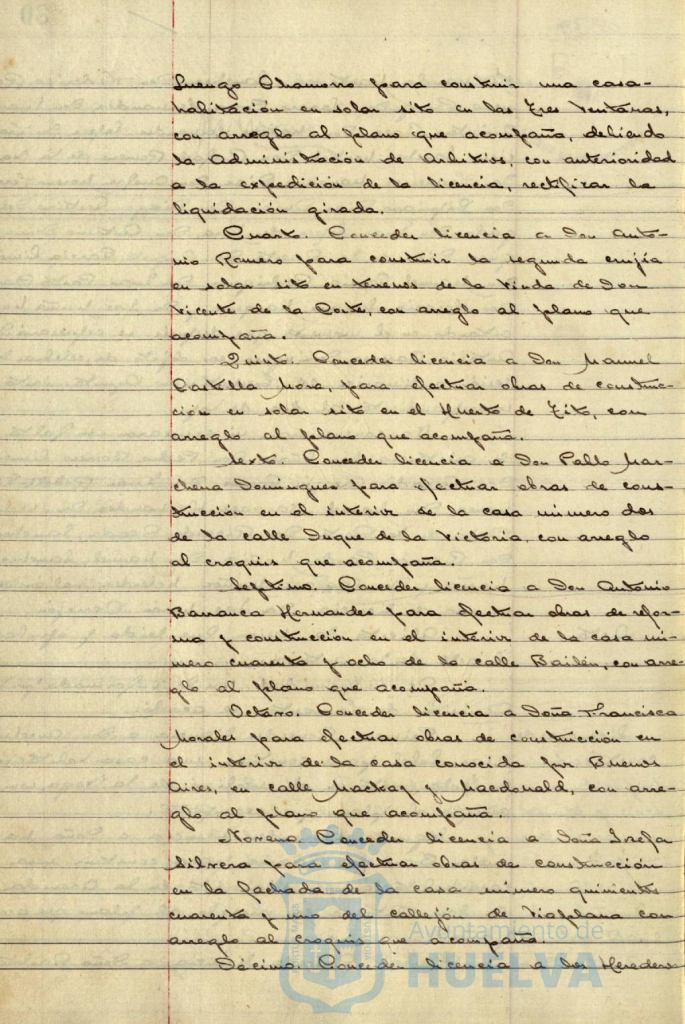 Luengo Chamorro para construir una casa-
habitación en solar sito en las Tres Ventanas,
con arreglo al plano que acompaña, debiendo
la Administración de Arbitrios, con anterioridad
a la expedición de la licencia, rectificar la
liquidación girada.
Cuarto. Conceder licencia a Don Anto-
nio Romero para construir la segunda crujía
en solar sito en terrenos de la Viuda de Don
Vicente de la Corte, con arreglo al plano que
acompaña.
Quinto. Conceder licencia a Don Manuel
Castilla Mora, para efectuar obras de construc-
ción en solar sito en el Huerto de Tito, con
arreglo al plano que acompaña.
Sexto. Conceder licencia a Don Pablo Mar-
chena Domínguez para efectuar obras de cons-
trucción en el interior de la casa número dos
de la calle Duque de la Victoria, con arreglo
al croquis que acompaña.
Septimo. Conceder licencia a Don Antonio
Barranca Hernandez para efectuar obras de refor-
ma y construcción en el interior de la casa nú-
mero cuarenta y ocho de la calle Bailén, con arre-
glo al plano que acompaña.
Octavo. Conceder licencia a Doña Francisca
Morales para efectuar obras de construcción en
el interior de la casa conocida por Buenos
Aires, en calle Mackay y Macdonald, con arre-
glo al plano que acompaña.
Noveno. Conceder licencia a Doña Josefa
Silvera para efectuar obras de construcción
en la fachada de la casa número quinientos
cuarenta y uno del callejón de Viaplana con
arreglo al croquis que acompaña.
Décimo. Conceder licencia a los Herederos
Ayuntamiento de
HUELVA